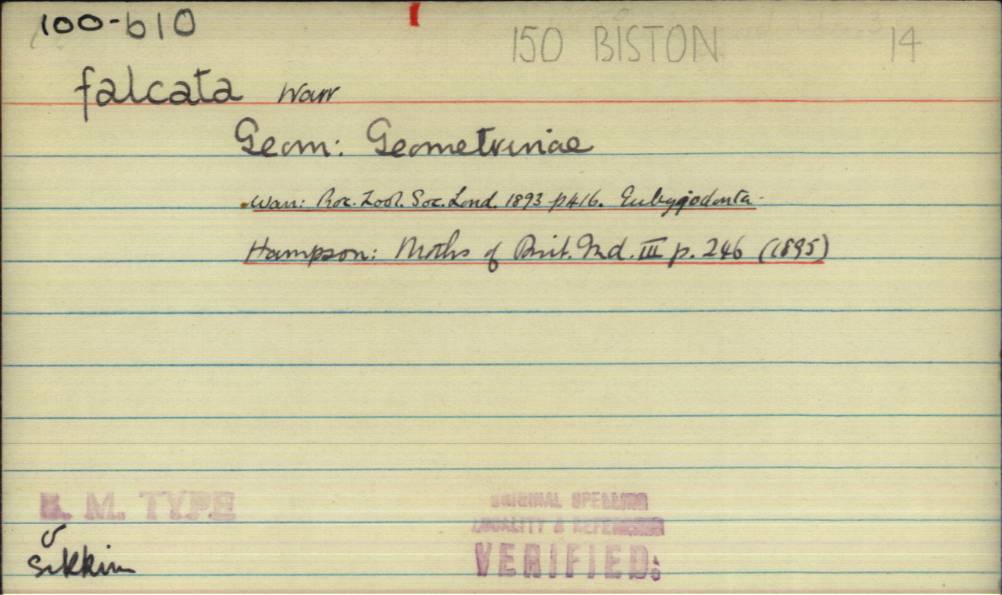 100-610
150 BISTON 14
falcata Warr
Geom: Geometrinae
Warr: Proc. Zool. Soc. Lond. 1893 p416. Eubyjodonta.
Hampson: Moths of Brit. Ind. III p. 246 (1895)
B. M. TYPE
Sikkim
ORIGINAL SPELLING
LOCALITY & REFERENCE
VERIFIED